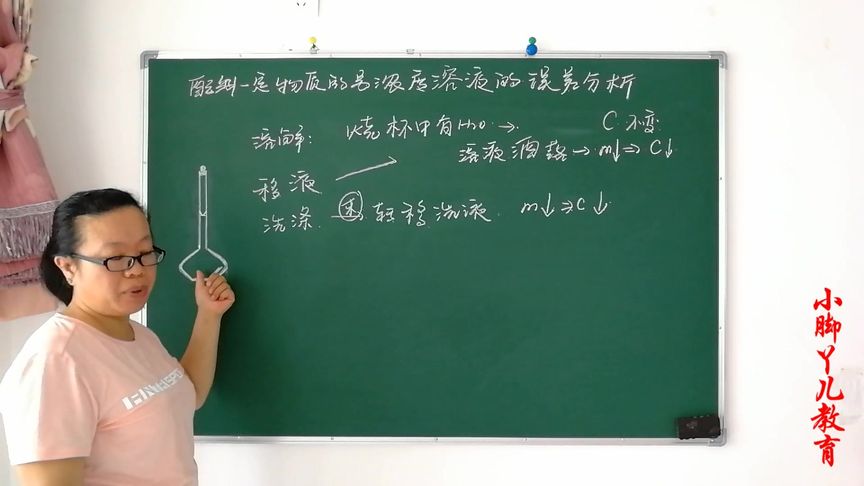 配制一定物质的量浓度溶液的误差分析
溶解: 烧杯中有H2O → C不变
溶液洒落 → m↓ ⇒ C↓
移液
洗涤 → 未 转移洗液 m↓ ⇒ C↓
小脚丫儿教育